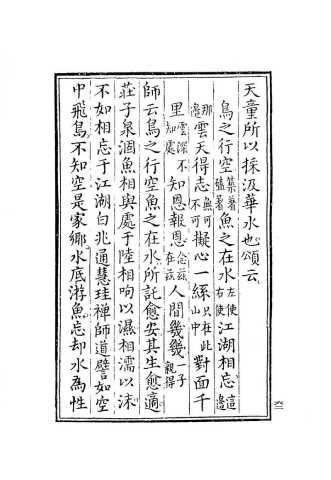 天童所以採汲華水也頌云
鳥之行空築著磕著魚之在水左使右使江湖相忘這邊
那邊雲天得志無可不可擬心一絲只在此山中對面千
里雲深不知處知恩報恩念茲在茲人間幾幾一子親得
師云鳥之行空魚之在水所託愈安其生愈適
莊子泉涸魚相與處于陸相呴以濕相濡以沫
不如相忘于江湖白兆通慧珪禪師道譬如空
中飛鳥不知空是家鄉水底游魚忘却水為性